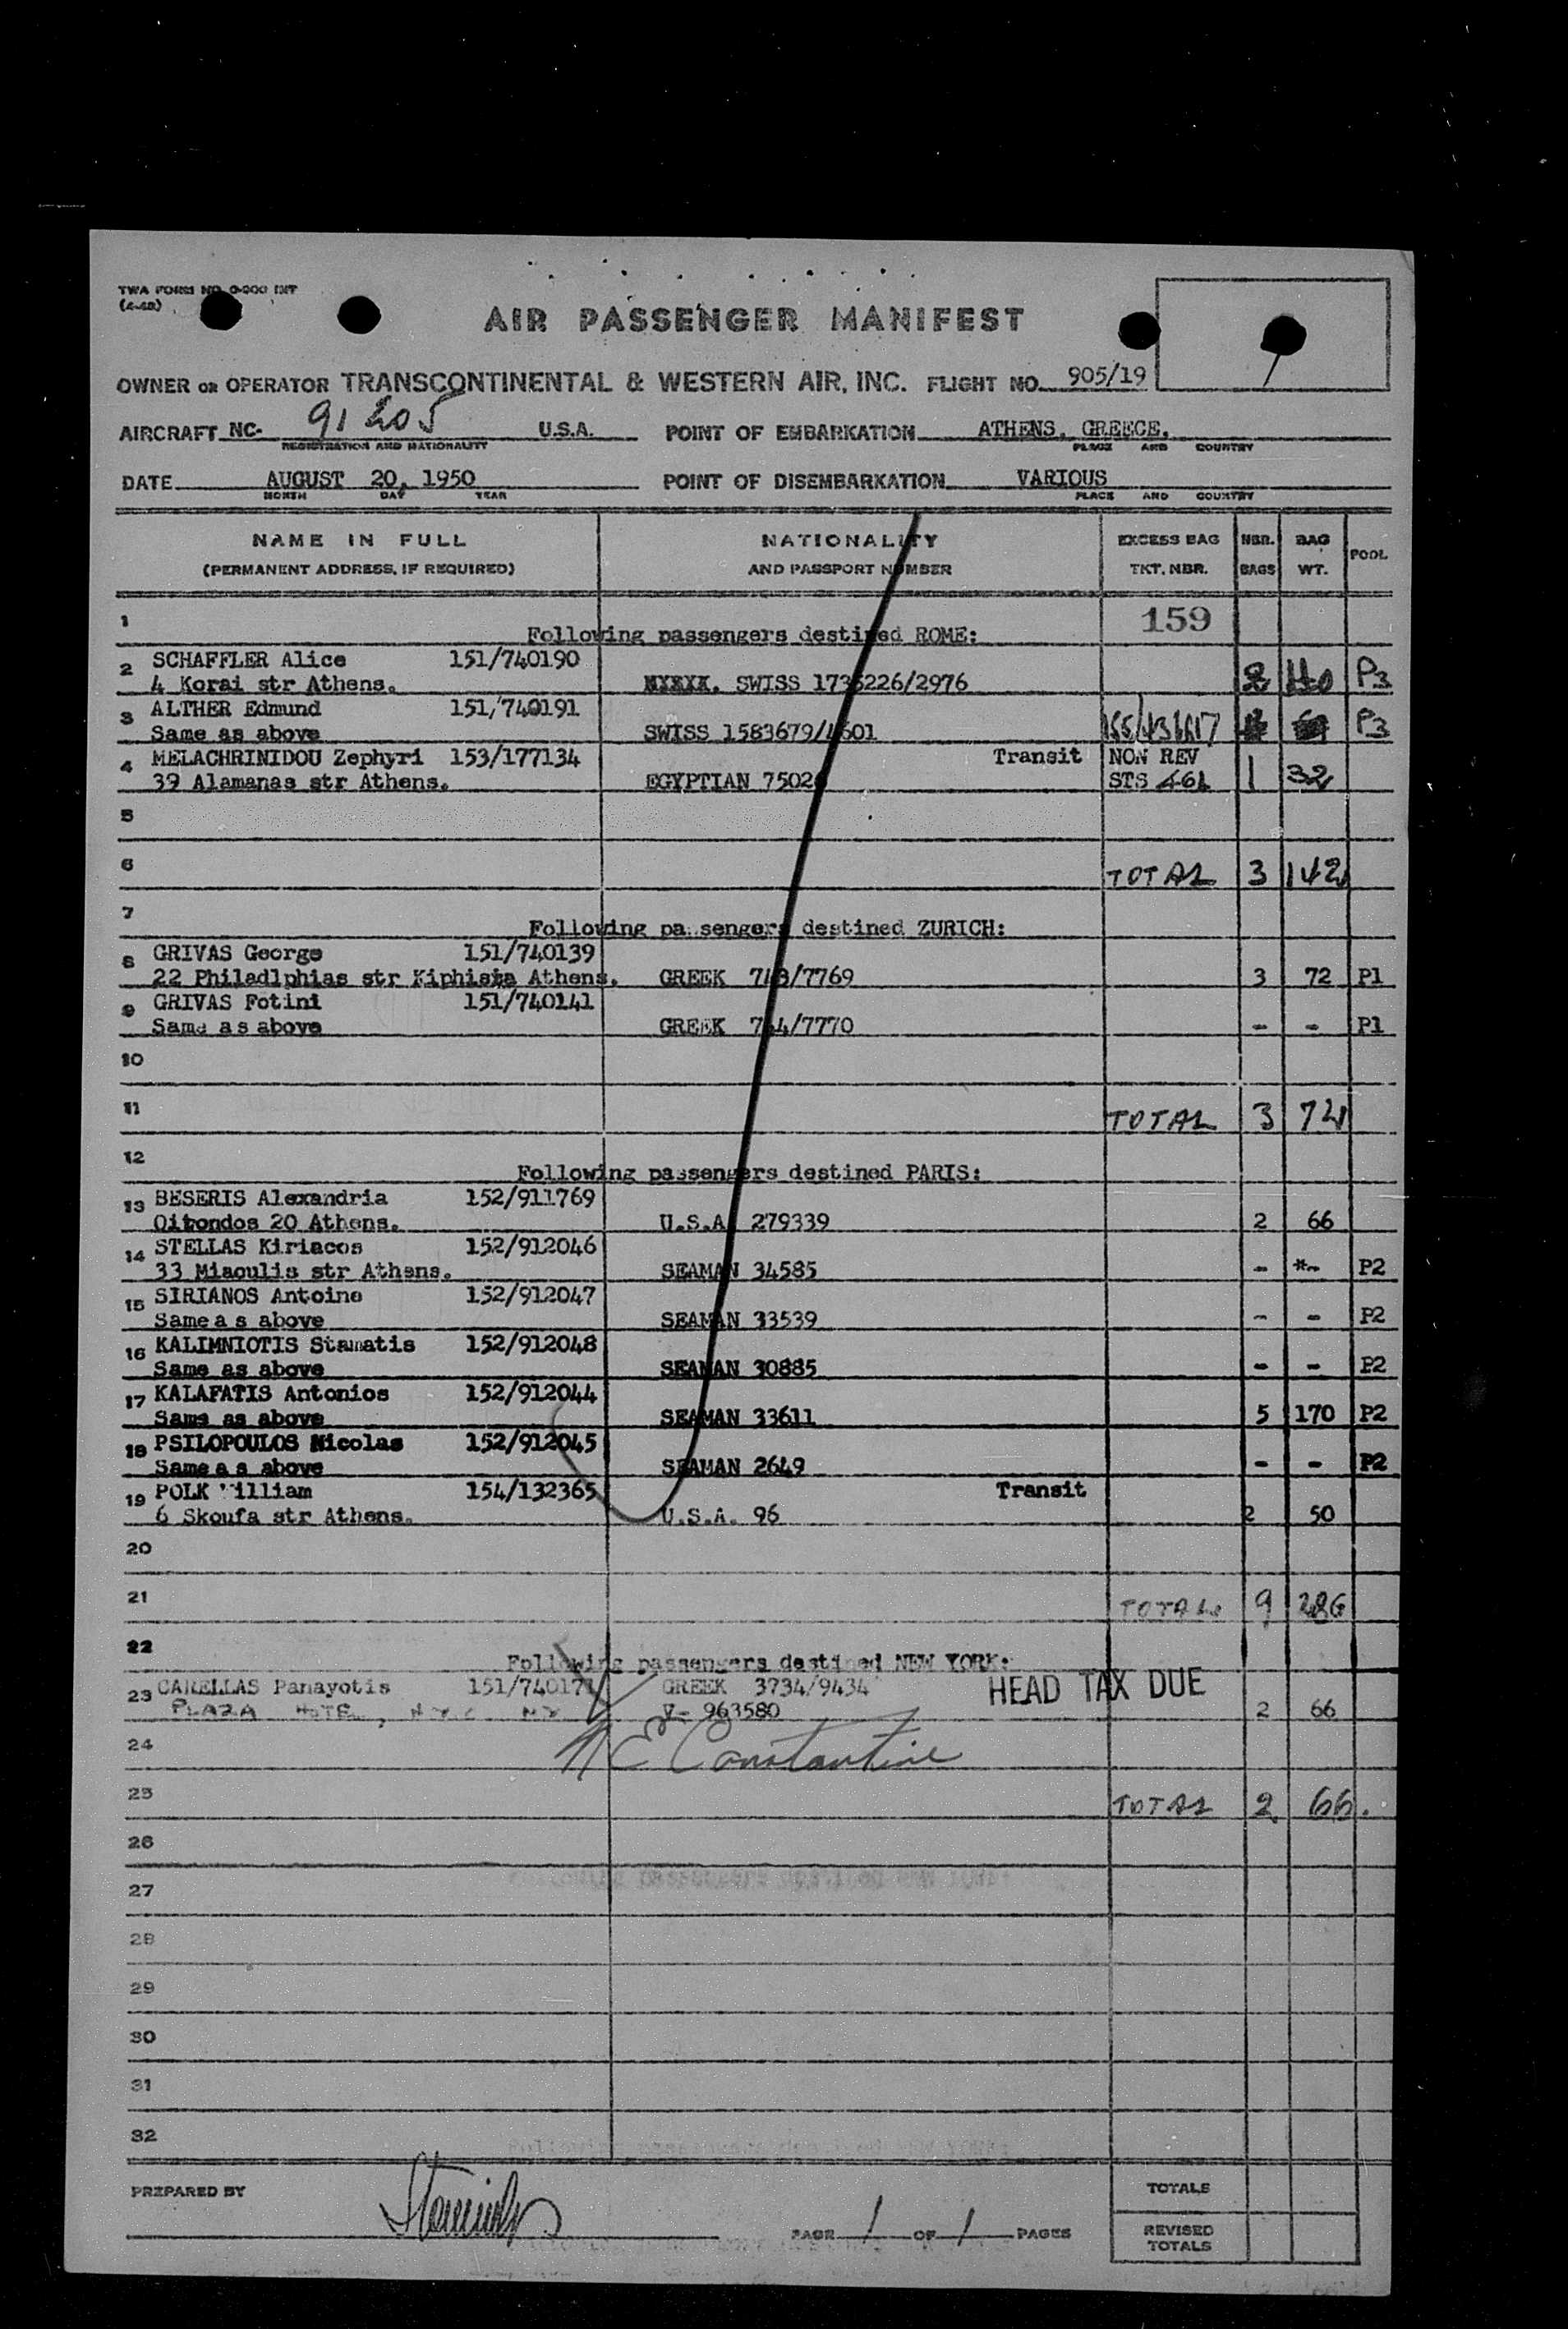 TWA FORM NO. 0-900 INT
(4-48)
AIR PASSENGER MANIFEST
OWNER OR OPERATOR TRANSCONTINENTAL & WESTERN AIR, INC. FLIGHT NO. 905/19
AIRCRAFT NC- 91205 U.S.A. POINT OF EMBARKATION ATHENS, GREECE.
REGISTRATION AND NATIONALITY PLACE AND COUNTRY
DATE AUGUST 20, 1950 POINT OF DISEMBARKATION VARIOUS
MONTH DAY YEAR PLACE AND COUNTRY
NAME IN FULL NATIONALITY EXCESS BAG NBR. BAG POOL
(PERMANENT ADDRESS, IF REQUIRED) AND PASSPORT NUMBER TKT. NBR. BAGS WT.
1 159
Following passengers destined ROME:
2 SCHAFFLER Alice 151/740190
4 Korai str Athens. SWISS 1736226/2976 2 110 P3
3 ALTHER Edmund 151/740191
Same as above SWISS 1583679/4601 P3
4 MELACHRINIDOU Zephyri 153/177134 Transit NON REV
39 Alamanas str Athens. EGYPTIAN 75026 STS 461 1 32
5
6 TOTAL 3 142
7
Following pa sengers destined ZURICH:
8 GRIVAS George 151/740139
22 Philadlphias str Kiphisia Athens. GREEK 743/7769 3 72 P1
9 GRIVAS Fotini 151/740141
Same as above GREEK 744/7770 - - P1
10
11 TOTAL 3 72
12
Following passengers destined PARIS:
13 BESERIS Alexandria 152/911769
Oitondos 20 Athens. U.S.A. 279339 2 66
14 STELLAS Kiriacos 152/912046
33 Miaoulis str Athens. SEAMAN 34585 - *- P2
15 SIRIANOS Antoine 152/912047
Same a s above SEAMAN 33539 - - P2
16 KALIMNIOTIS Stamatis 152/912048
Same as above SEAMAN 30885 - - P2
17 KALAFATIS Antonios 152/912044
Same as above SEAMAN 33611 5 170 P2
18 PSILOPOULOS Nicolas 152/912045
Same a s above SEAMAN 2649 - - P2
19 POLK William 154/132365 Transit
6 Skoufa str Athens. U.S.A. 96 2 50
20
21 TOTAL 9 286
22
Following passengers destined NEW YORK:
23 CARELLAS Panayotis 151/740171 GREEK 3734/9434 HEAD TAX DUE
PLAZA HOTEL, N.Y.C. NY V- 963580 2 66
24 N E Constantine
25 TOTAL 2 66.
26
27
28
29
30
31
32
PREPARED BY TOTALS
PAGE 1 OF 1 PAGES REVISED
TOTALS